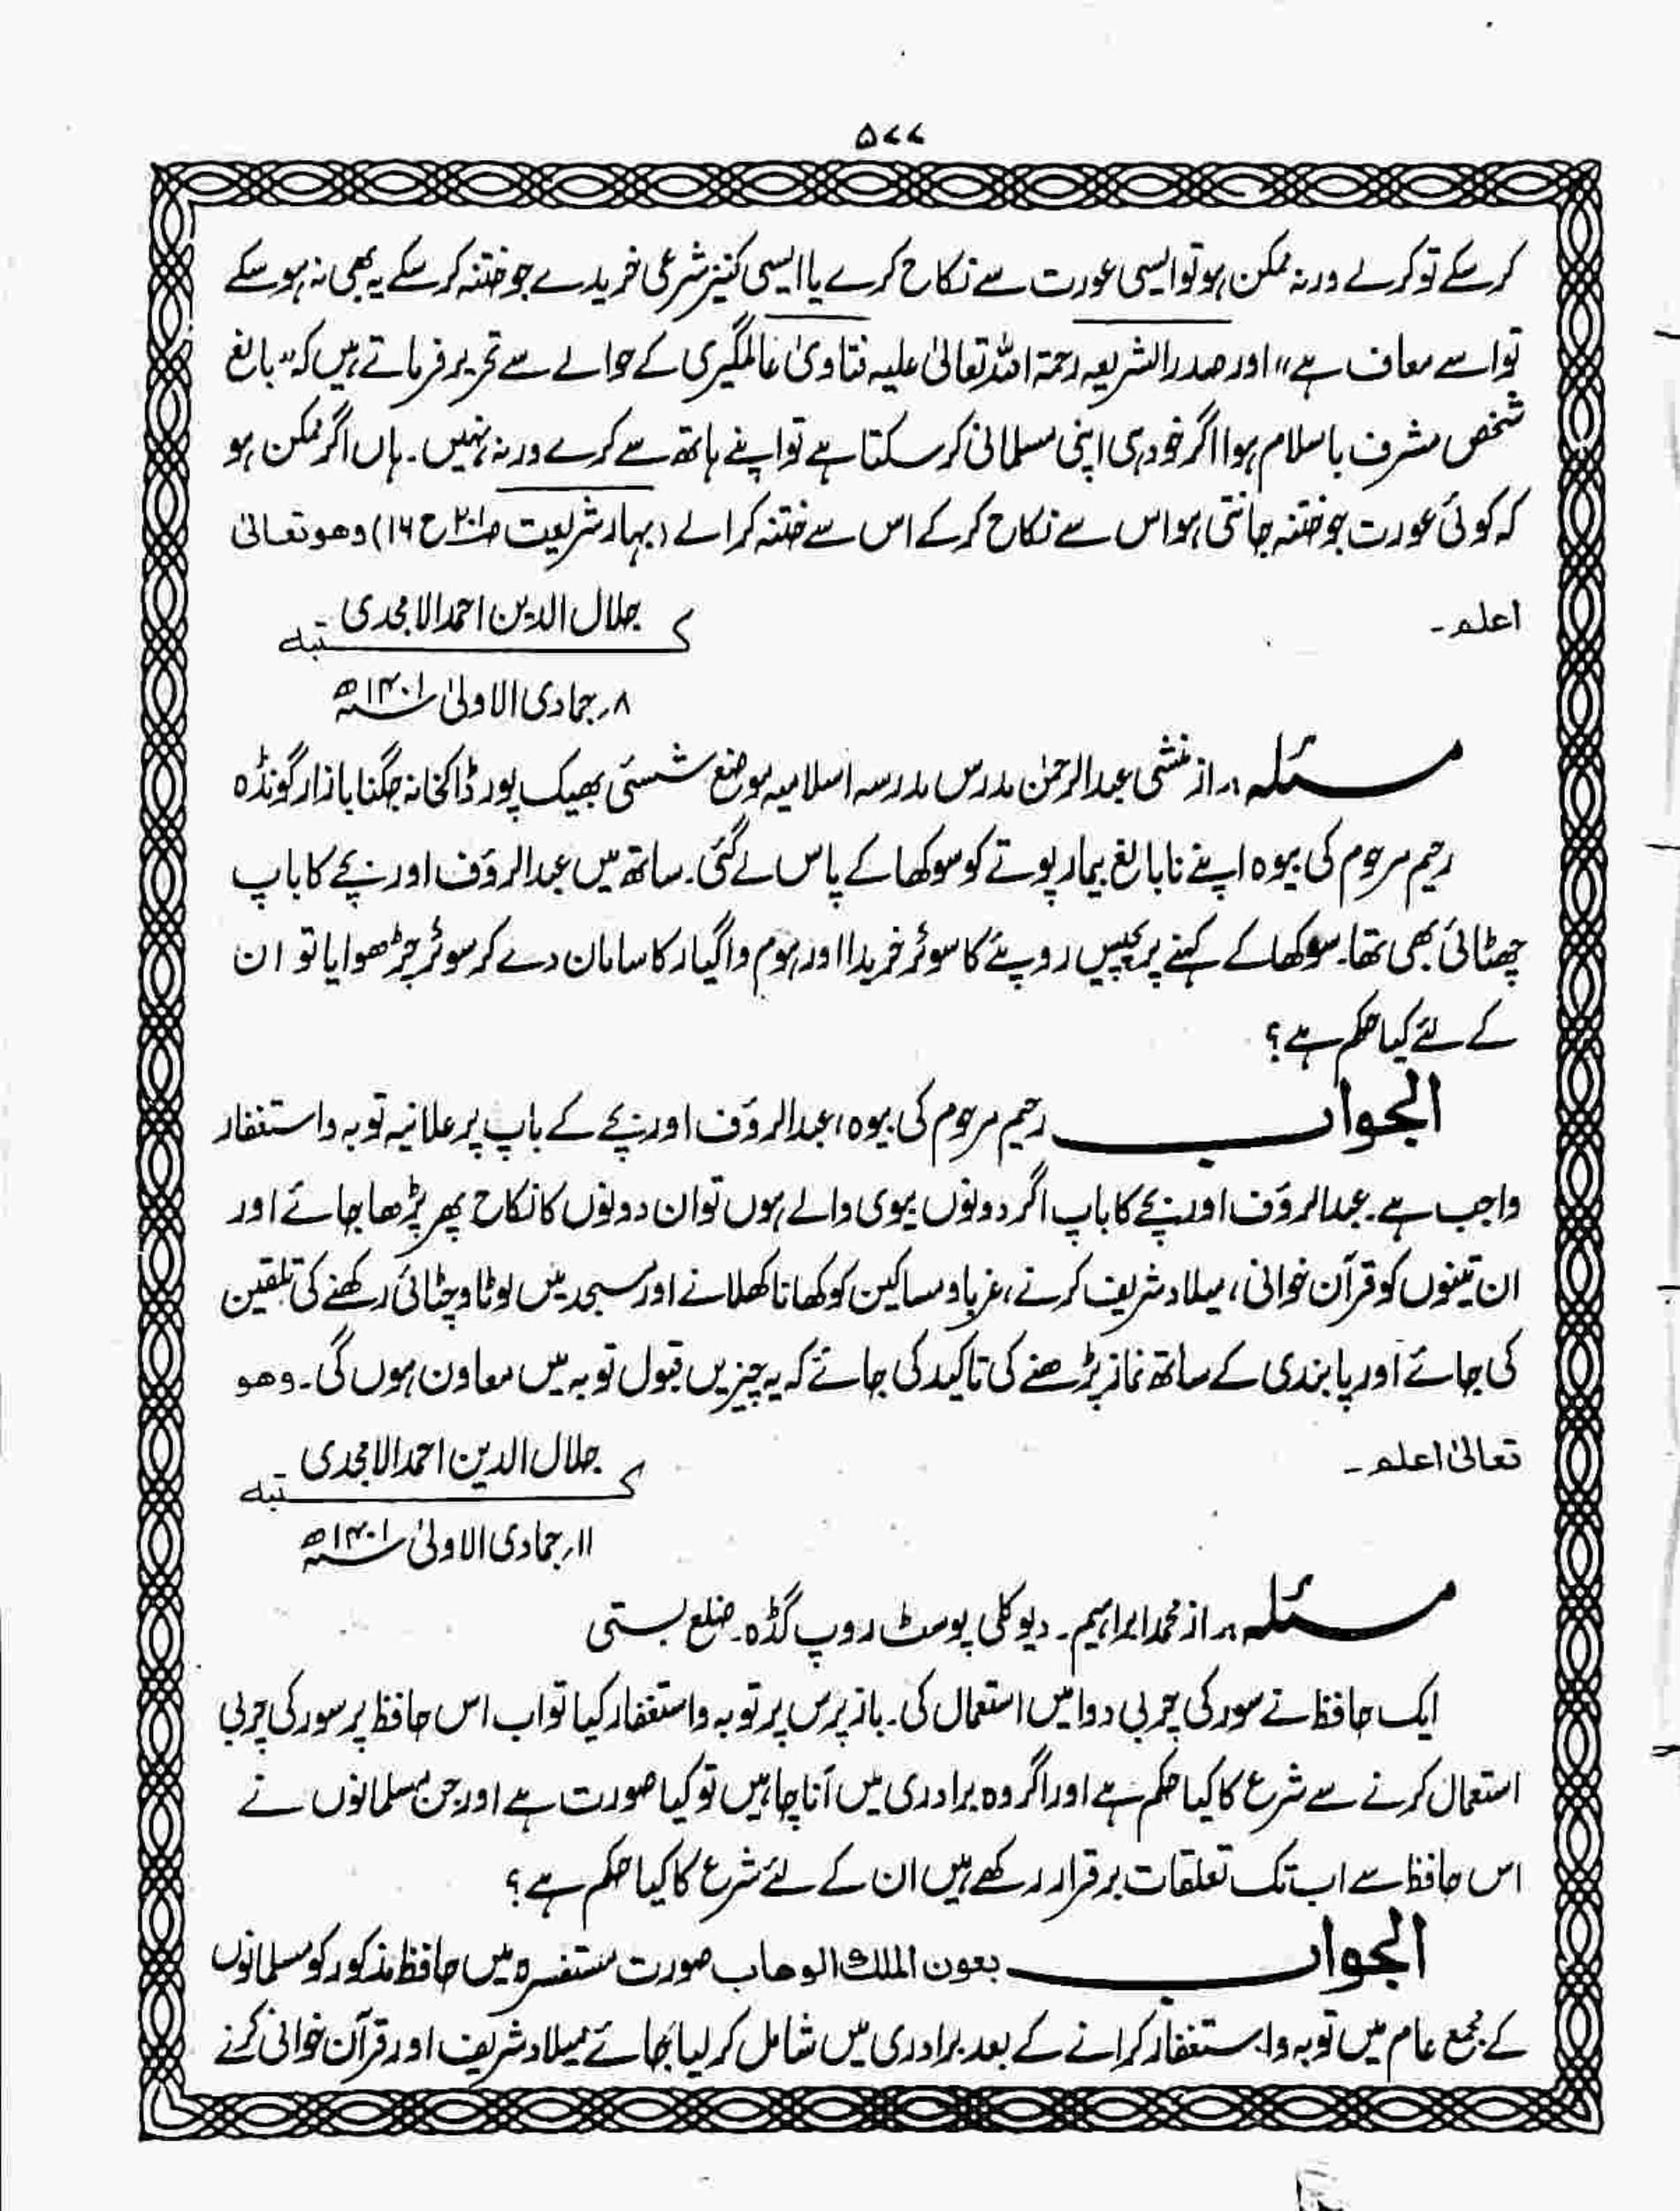 ۵۷۷
کرسکے تو کرلے ورنہ ممکن ہو تو ایسی عورت سے نکاح کرے یا ایسی کنیز شرعی خریدے جو ختنہ کرسکے یہ بھی نہ ہوسکے
تو اسے معاف ہے،، اور صدر الشریعہ رحمۃ اللہ تعالیٰ علیہ فتاویٰ عالمگیری کے حوالے سے تحریر فرماتے ہیں کہ،، بالغ
شخص مشرف باسلام ہوا اگر خود ہی اپنی مسلمانی کرسکتا ہے تو اپنے ہاتھ سے کرے ورنہ نہیں۔ ہاں اگر ممکن ہو
کہ کوئی عورت جو ختنہ جانتی ہو اس سے نکاح کرکے اس سے ختنہ کرالے (بہار شریعت ص۲۰۱ ح ۱۶) وھو تعالیٰ
اعلم۔
جلال الدین احمد الامجدی
کتبہ
۸؍ جمادی الاولیٰ ۱۴۰۱ھ
مسئلہ:۔ از منشی عبدالرحمٰن مدرس مدرسہ اسلامیہ موضع شسئی بھیک پور ڈاکخانہ جگنا بازار گونڈہ
رحیم مرحوم کی بیوہ اپنے نابالغ بیمار پوتے کو سوکھا کے پاس لے گئی۔ ساتھ میں عبدالرؤف اور بچے کا باپ
چھٹائی بھی تھا۔ سوکھا کے کہنے پر پچیس روپئے کا سوئر خریدا اور ہوم واگیار کا سامان دے کر سوئر چڑھوایا تو ان
کے لئے کیا حکم ہے؟
الجواب رحیم مرحوم کی بیوہ، عبدالرؤف اور بچے کے باپ پر علانیہ توبہ واستغفار
واجب ہے۔ عبدالرؤف اور بچے کا باپ اگر دونوں بیوی والے ہوں تو ان دونوں کا نکاح پھر پڑھا جائے اور
ان تینوں کو قرآن خوانی، میلاد شریف کرنے، غربا و مساکین کو کھانا کھلانے اور مسجد میں لوٹا و چٹائی رکھنے کی تلقین
کی جائے اور پابندی کے ساتھ نماز پڑھنے کی تاکید کی جائے کہ یہ چیزیں قبول توبہ میں معاون ہوں گی۔ وھو
تعالیٰ اعلم۔
جلال الدین احمد الامجدی
کتبہ
۱۱؍ جمادی الاولیٰ ۱۴۰۱ھ
مسئلہ:۔ از محمد ابراہیم۔ دیوکلی پوسٹ روپ گڈہ۔ ضلع بستی
ایک حافظ نے سور کی چربی دوا میں استعمال کی۔ باز پرس پر توبہ واستغفار کیا تو اب اس حافظ پر سور کی چربی
استعمال کرنے سے شرع کا کیا حکم ہے اور اگر وہ برادری میں آنا چاہیں تو کیا صورت ہے اور جن مسلمانوں نے
اس حافظ سے اب تک تعلقات برقرار رکھے ہیں ان کے لئے شرع کا کیا حکم ہے؟
الجواب بعون الملک الوھاب صورت مستفسرہ میں حافظ مذکور کو مسلمانوں
کے مجمع عام میں توبہ واستغفار کرانے کے بعد برادری میں شامل کرلیا جائے میلاد شریف اور قرآن خوانی کرنے